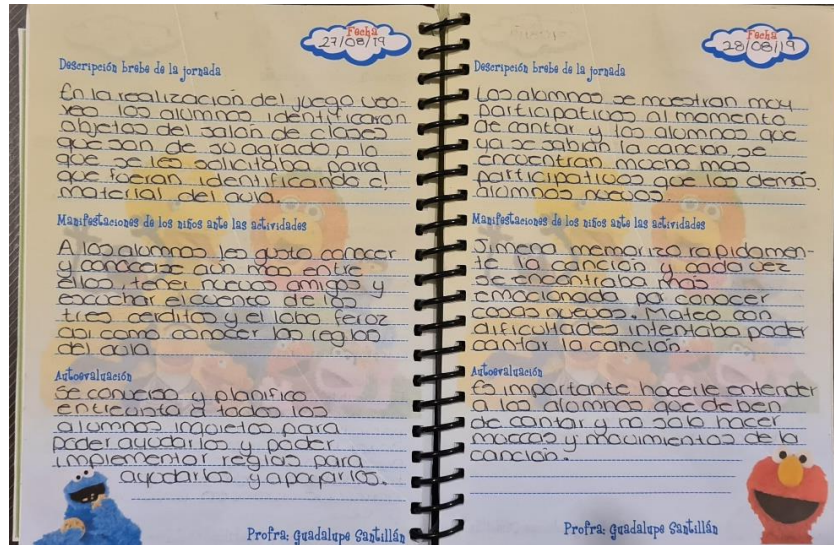 Fecha
27/08/19
Descripción brebe de la jornada
En la realización del juego veo-
veo los alumnos identificaron
objetos del salon de clases
que son de su agrado o lo
que se les solicitaba para
que fueran identificando el
material del aula.
Manifestaciones de los niños ante las actividades
A los alumnos les gusto conocer
y conocerse aún mas entre
ellos, tener nuevos amigos y
escuchar el cuento de los
tres cerditos y el lobo feroz
asi como conocer las reglas
del aula
Autoevaluación
Se converso y planifico
entrevista a todos los
alumnos inquietos para
poder ayudarlos y poder
implementar reglas para
ayudarlos y apoyarlos.
Profra: Guadalupe Santillán
Fecha
28/08/19
Descripción brebe de la jornada
Los alumnos se muestran muy
participativos al momento
de cantar y los alumnos que
ya se sabian la canción, se
encuentran mucho mas
participativos que los demás.
alumnos nuevos.
Manifestaciones de los niños ante las actividades
Jimena memoriza rapidamen-
te la canción y cada vez
se encontraba mas
emocionada por conocer
cosas nuevas. Mateo con
dificultades intentaba poder
cantar la canción.
Autoevaluación
Es importante hacerle entender
a los alumnos que deben
de cantar y no solo hacer
muecas y movimientos de la
canción.
Profra: Guadalupe Santillán